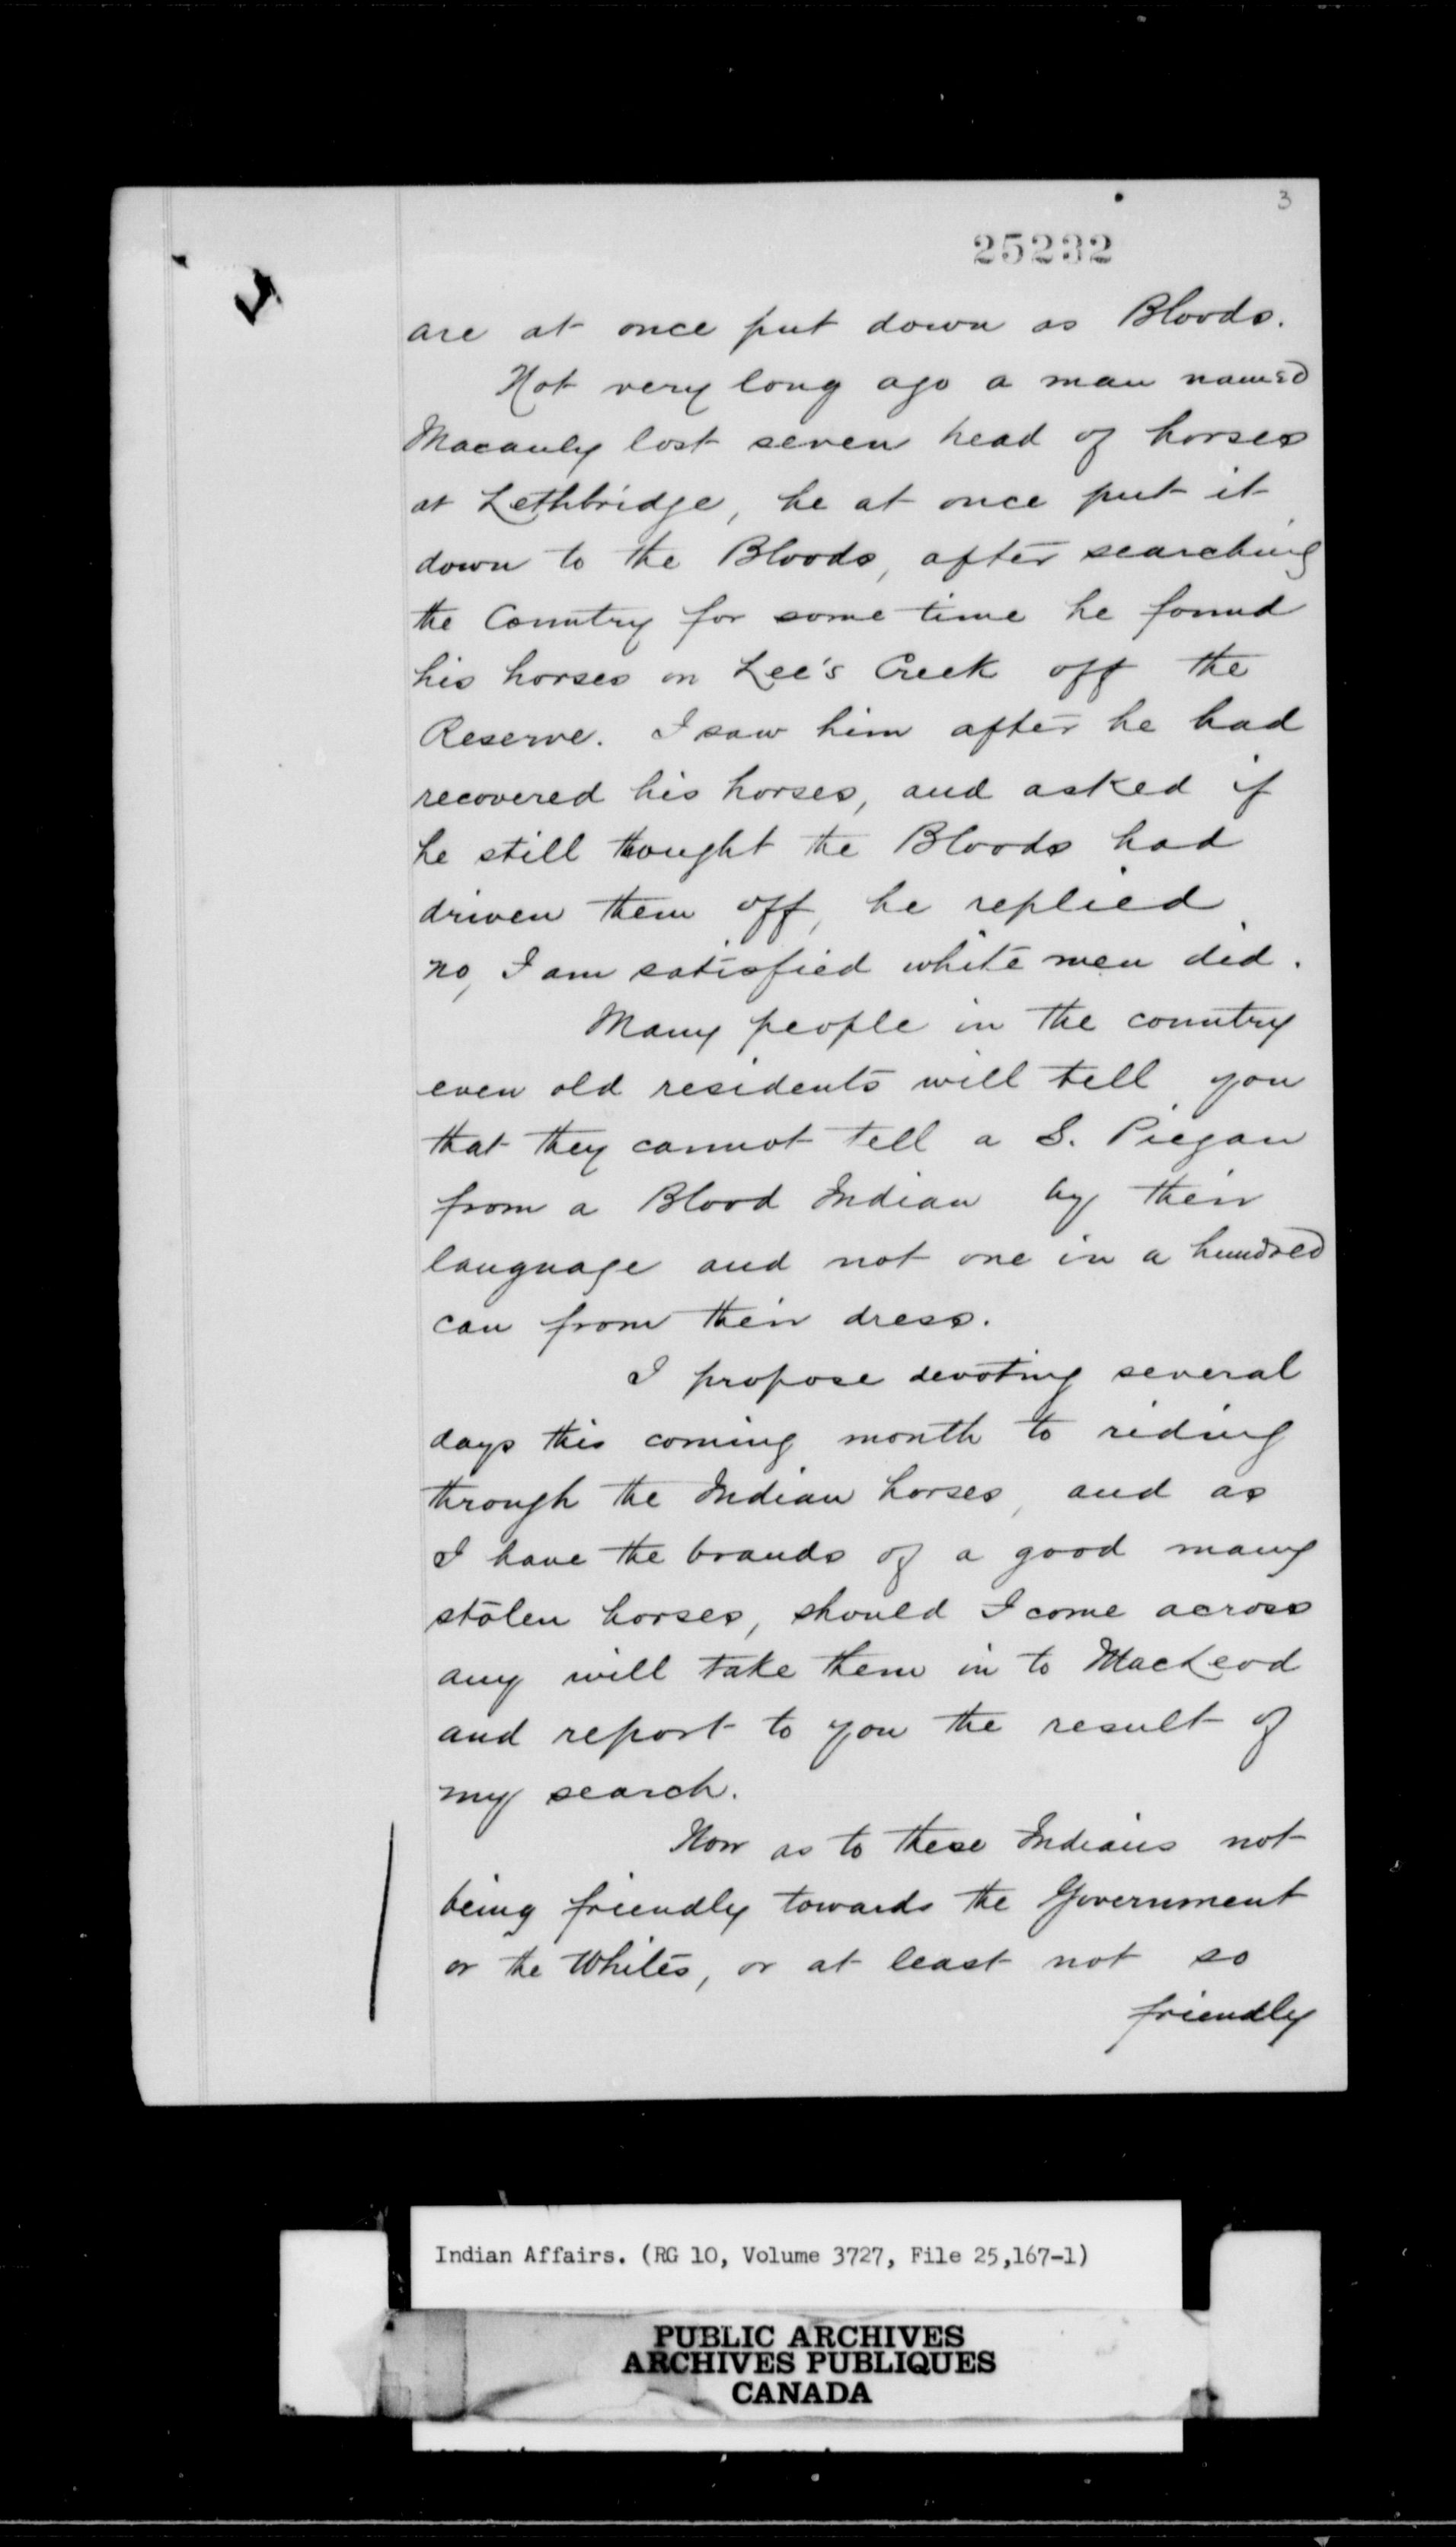 3
25232
are at once put down as Bloods.
Not very long ago a man named
Macauly lost seven head of horses
at Lethbridge, he at once put it
down to the Bloods, after searching
the Country for some time he found
his horses on Lee's Creek off the
Reserve. I saw him after he had
recovered his horses, and asked if
he still thought the Bloods had
driven them off, he replied
no, I am satisfied white men did.
Many people in the country
even old residents will tell you
that they cannot tell a S. Piegan
from a Blood Indian by their
language and not one in a hundred
can from their dress.
I propose devoting several
days this coming month to riding
through the Indian horses, and as
I have the brands of a good many
stolen horses, should I come across
any will take them in to MacLeod
and report to you the result of
my search.
Now as to these Indians not
being friendly towards the Government
or the Whites, or at least not so
friendly
Indian Affairs. (RG 10, Volume 3727, File 25,167-1)
PUBLIC ARCHIVES
ARCHIVES PUBLIQUES
CANADA